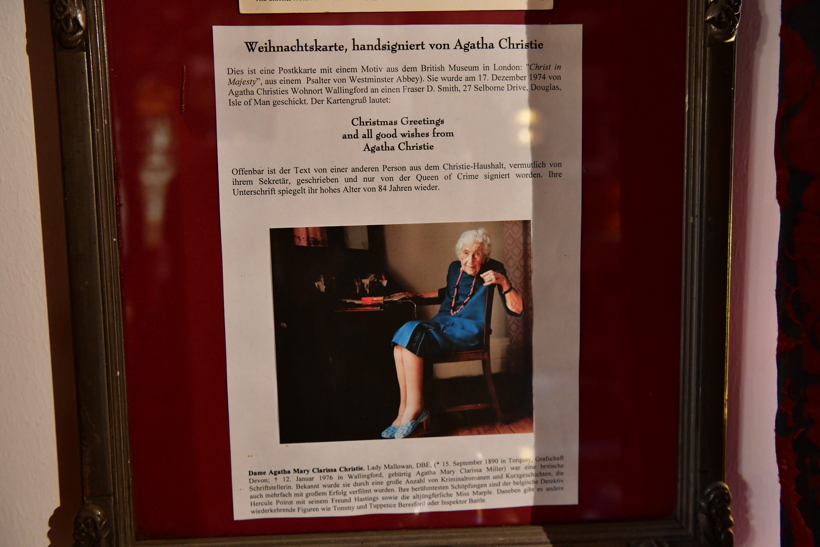 Weihnachtskarte, handsigniert von Agatha Christie
Dies ist eine Postkkarte mit einem Motiv aus dem British Museum in London: "Christ in
Majesty", aus einem Psalter von Westminster Abbey). Sie wurde am 17. Dezember 1974 von
Agatha Christies Wohnort Wallingford an einen Fraser D. Smith, 27 Selborne Drive, Douglas,
Isle of Man geschickt. Der Kartengruß lautet:
Christmas Greetings
and all good wishes from
Agatha Christie
Offenbar ist der Text von einer anderen Person aus dem Christie-Haushalt, vermutlich von
ihrem Sekretär, geschrieben und nur von der Queen of Crime signiert worden. Ihre
Unterschrift spiegelt ihr hohes Alter von 84 Jahren wieder.
Dame Agatha Mary Clarissa Christie, Lady Mallowan, DBE, (* 15. September 1890 in Torquay, Grafschaft
Devon; † 12. Januar 1976 in Wallingford, gebürtig Agatha Mary Clarissa Miller) war eine britische
Schriftstellerin. Bekannt wurde sie durch eine große Anzahl von Kriminalromanen und Kurzgeschichten, die
auch mehrfach mit großem Erfolg verfilmt wurden. Ihre berühmtesten Schöpfungen sind der belgische Detektiv
Hercule Poirot mit seinem Freund Hastings sowie die altjüngferliche Miss Marple. Daneben gibt es andere
wiederkehrende Figuren wie Tommy und Tuppence Beresford oder Inspektor Battle.